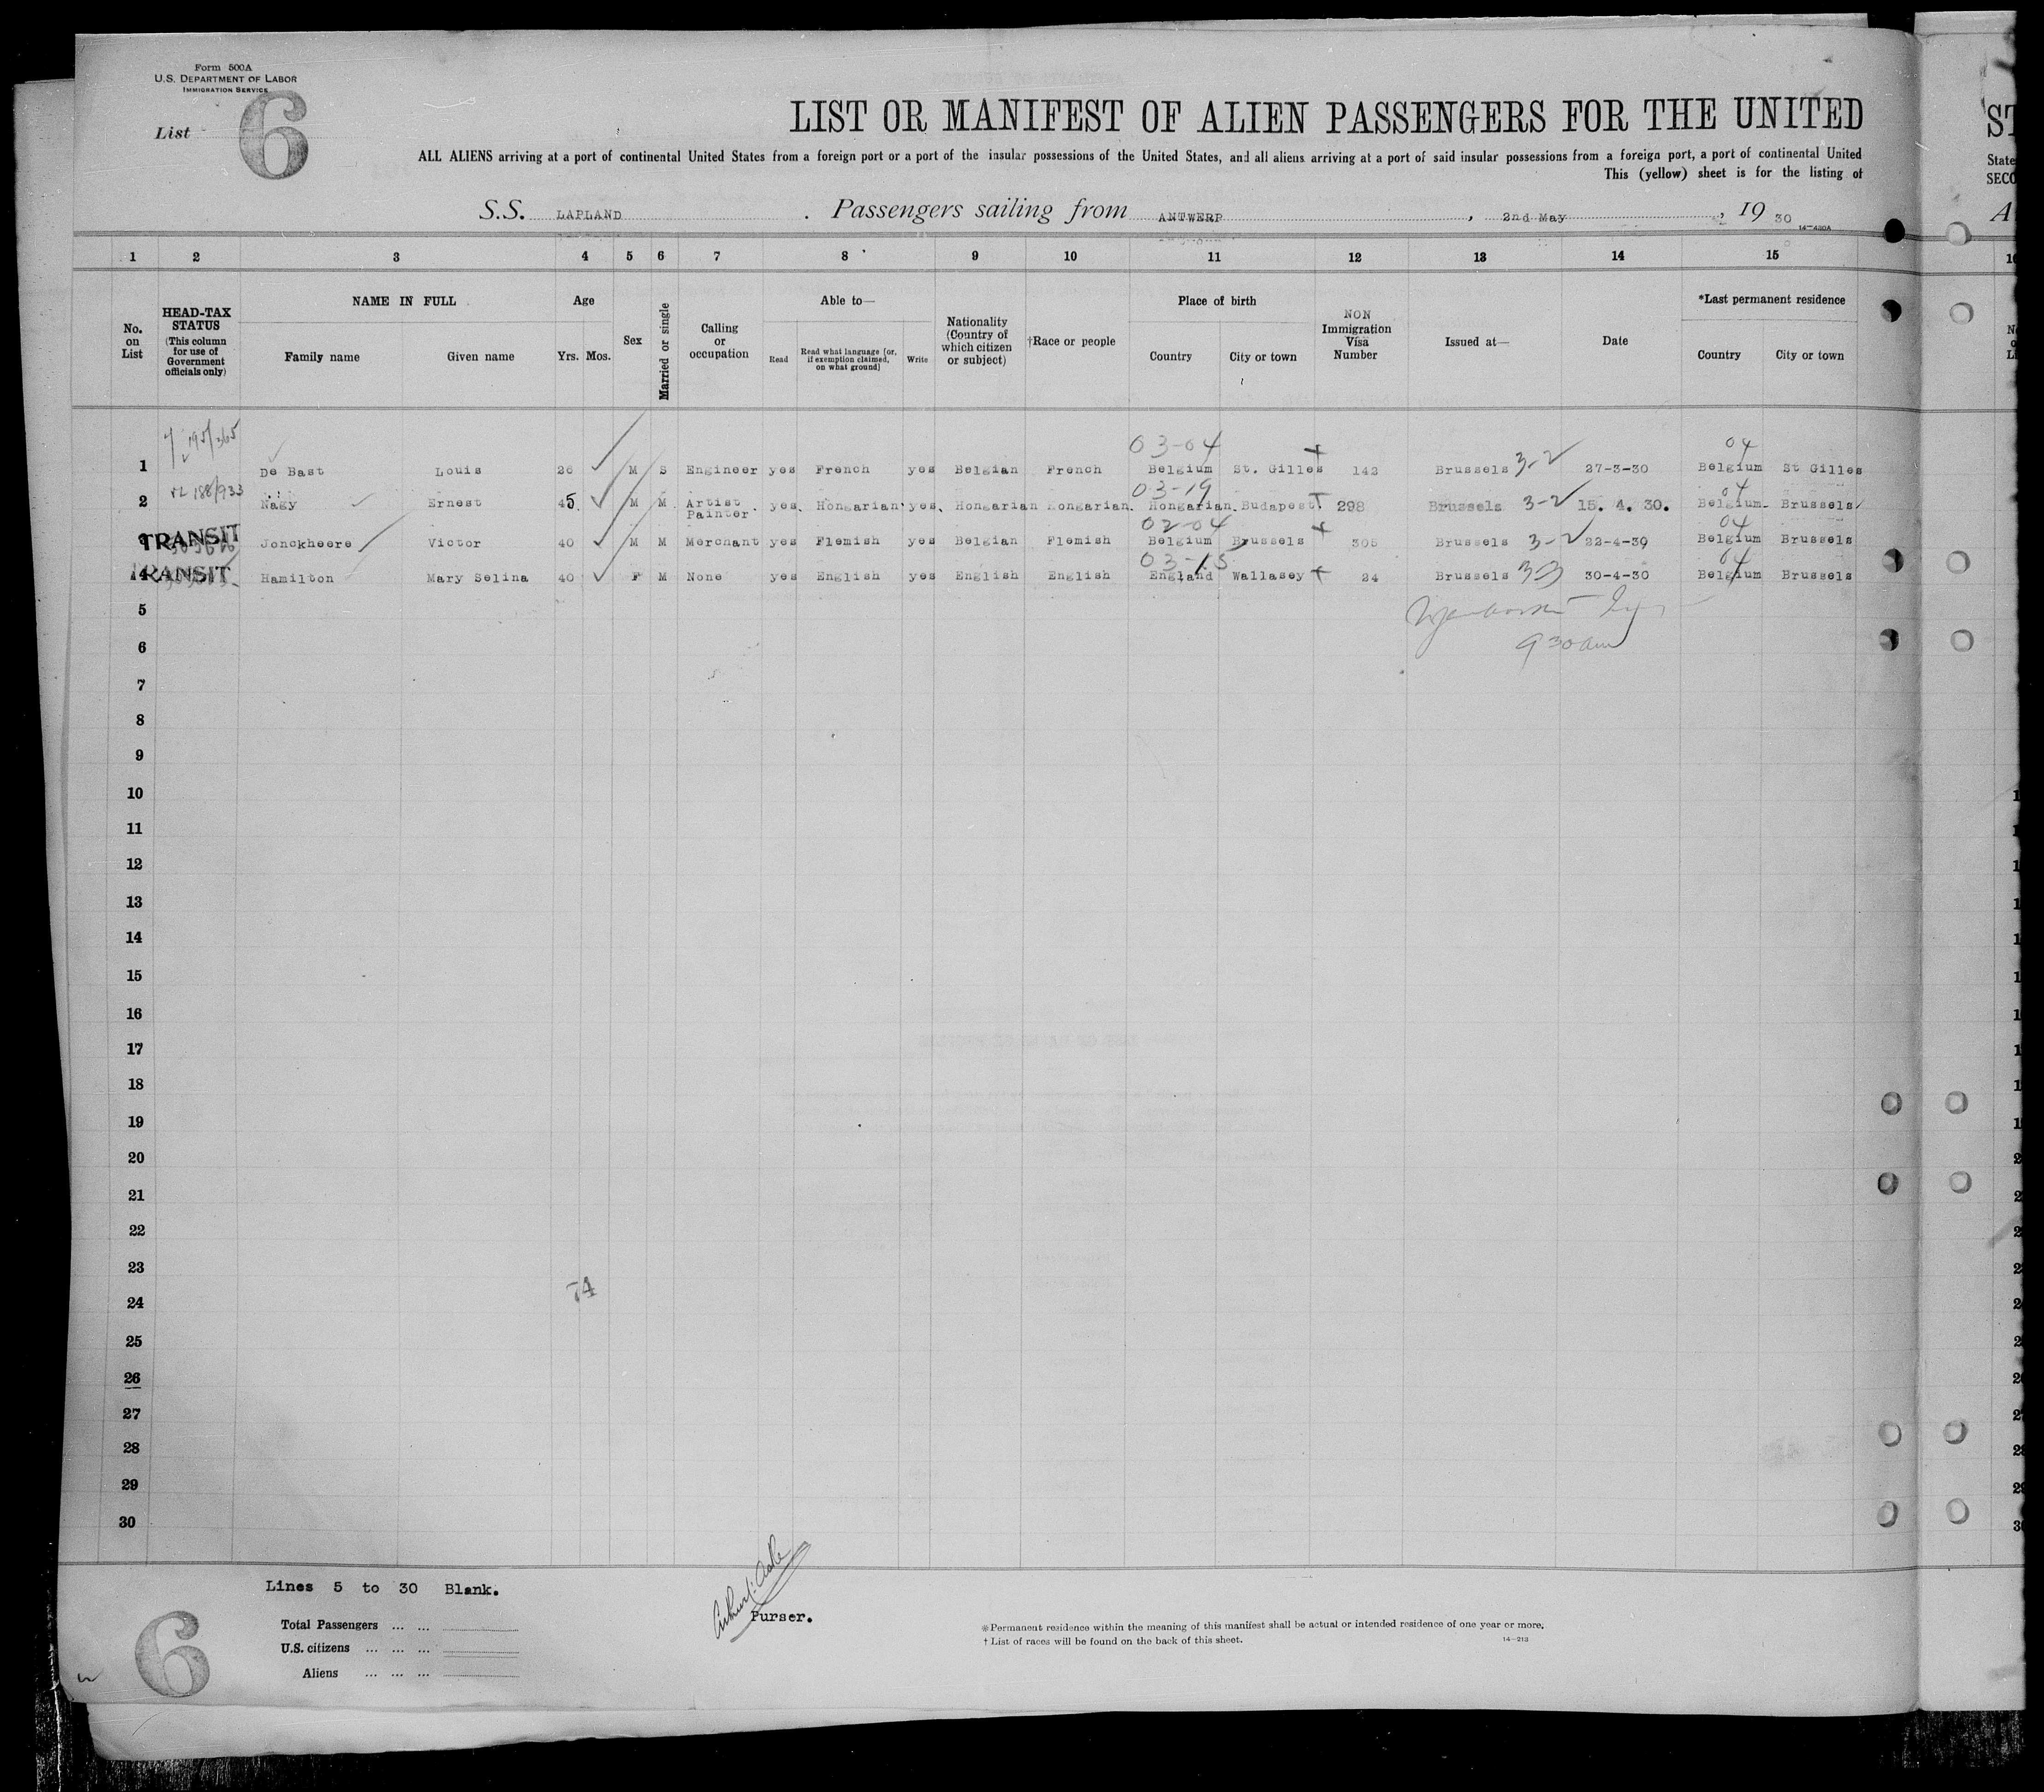 Form 500A
U.S. DEPARTMENT OF LABOR
IMMIGRATION SERVICE
List 6
LIST OR MANIFEST OF ALIEN PASSENGERS FOR THE UNITED
ST
ALL ALIENS arriving at a port of continental United States from a foreign port or a port of the insular possessions of the United States, and all aliens arriving at a port of said insular possessions from a foreign port, a port of continental United
State
This (yellow) sheet is for the listing of
SECO
S.S. LAPLAND . Passengers sailing from ANTWERP , 2nd May , 19 30
14—430A
1 2 3 4 5 6 7 8 9 10 11 12 13 14 15
No. on List
HEAD-TAX STATUS (This column for use of Government officials only)
NAME IN FULL
Family name Given name
Age
Yrs. Mos.
Sex
Married or single
Calling or occupation
Able to—
Read
Read what language [or, if exemption claimed, on what ground]
Write
Nationality (Country of which citizen or subject)
†Race or people
Place of birth
Country City or town
NON
Immigration Visa Number
Issued at—
Date
*Last permanent residence
Country City or town
195/365 03-04 04
1 De Bast Louis 26 M S Engineer yes French yes Belgian French Belgium St. Gilles 142 Brussels 3-2 27-3-30 Belgium St Gilles
188/933 03-19 04
2 Nagy Ernest 45. M M Artist Painter. yes. Hongarian yes. Hongarian Hongarian. Hongarian. Budapest. 298 Brussels 3-2 15. 4. 30. Belgium. Brussels
02-04 04
TRANSIT Jonckheere Victor 40 M M Merchant yes Flemish yes Belgian Flemish Belgium Brussels 305 Brussels 3-2 22-4-30 Belgium Brussels
03-15 04
4 TRANSIT Hamilton Mary Selina 40 F M None yes English yes English English England Wallasey 24 Brussels 3-3 30-4-30 Belgium Brussels
5
6 9 30 am
7
8
9
10
11
12
13
14
15
16
17
18
19
20
21
22
23
74
24
25
26
27
28
29
30
Lines 5 to 30 Blank.
Purser.
Total Passengers ... ...
U.S. citizens ... ... ...
Aliens ... ... ...
6
*Permanent residence within the meaning of this manifest shall be actual or intended residence of one year or more.
† List of races will be found on the back of this sheet. 14—213